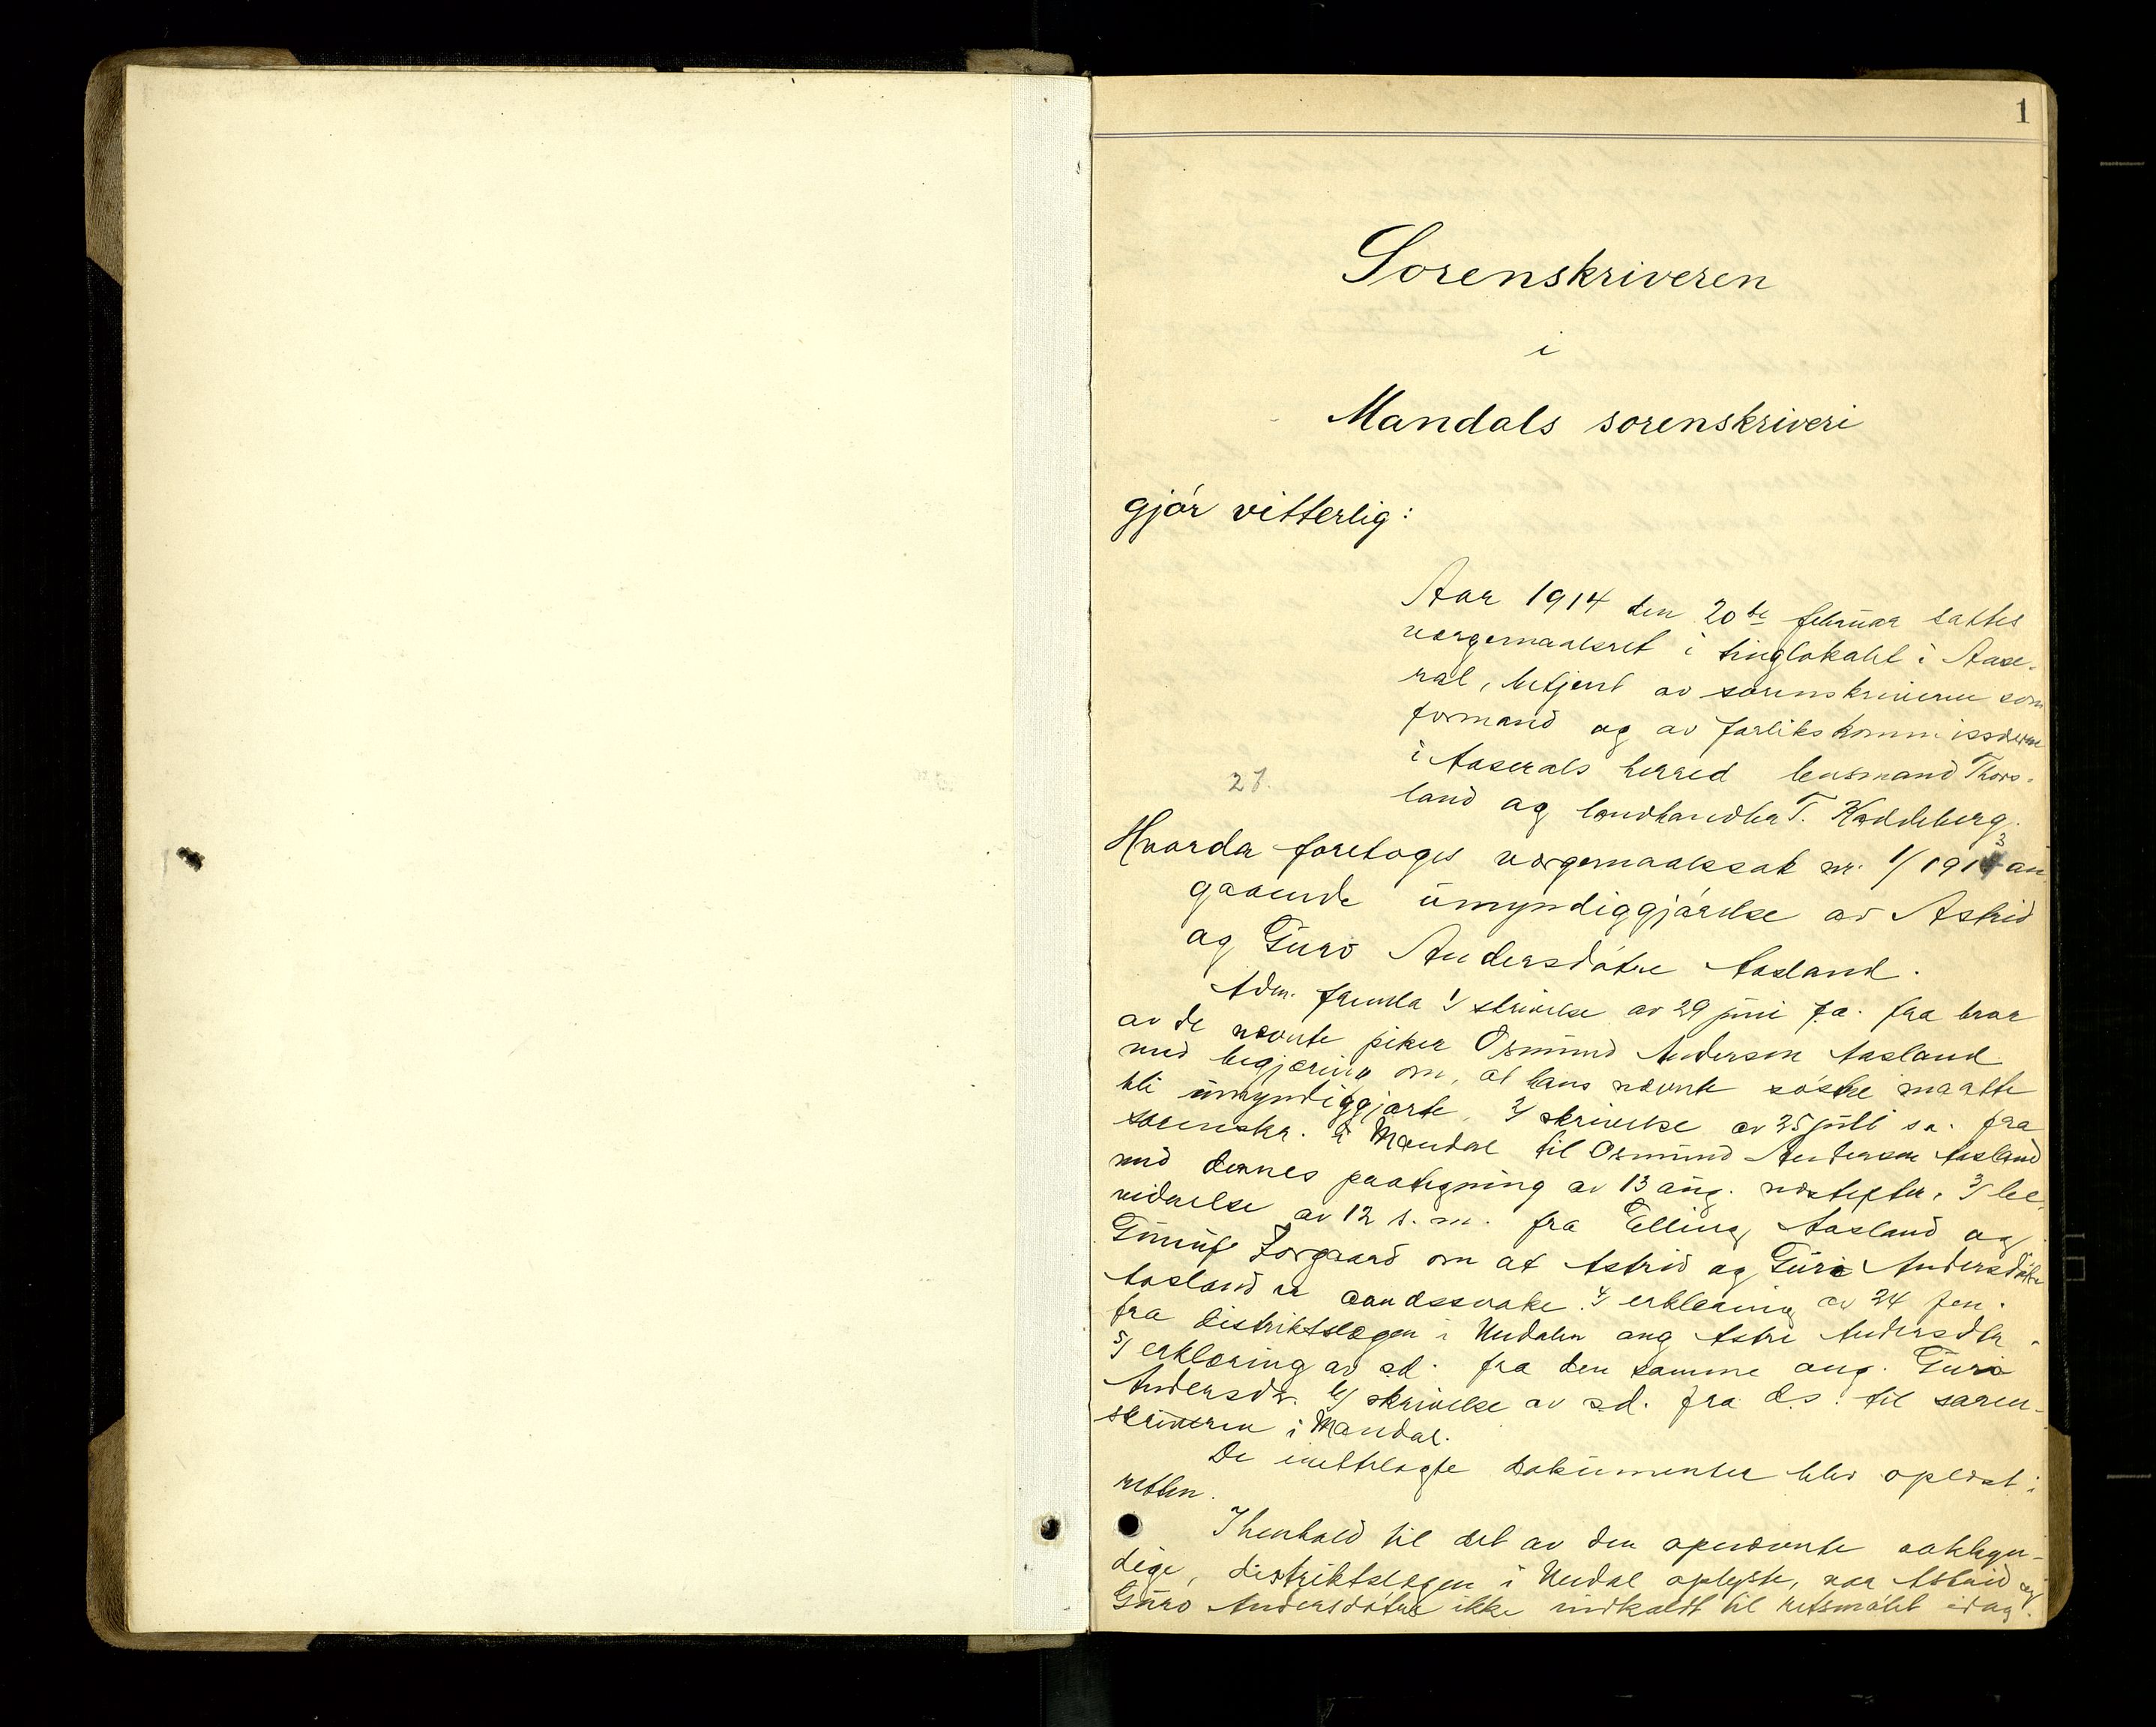 1
Sorenskriveren
i
Mandals sorenskriveri
gjör vitterlig:
Aar 1914 den 20de februar sattes
vergemaalsret i tinglokalet i Aase-
ral, betjent av sorenskriveren som
formand og av forlikskommissærene
i Aaserals herred lensmand Thors-
land og landhandler T. Kaddeberg.
27.
Hvorda foretoges vergemaalssak nr. 1/1913 an-
gaaende umyndiggjörelse av Astrid
og Guro Andersdötre Aasland.
Adm. fremla 1/ skrivelse av 29 juni f.a. fra bror
av de nævnte piker Osmund Anderson Aasland
med begjæring om, at hans nævnte söstre maatte
bli umyndiggjorte, 2/ skrivelse av 25 juli s.a. fra
sorenskr. i Mandal til Osmund Anderson Aasland
med dennes paategning av 13 aug. næstefter, 3/ be-
vidnelse av 12 s.m. fra Elling Aasland og
Gunuf Jorgaard om at Astrid og Guro Andersdötre
Aasland er aandssvake. 4/ erklæring av 24 jan.
fra distriktslægen i Undalen ang Astri Andersdtr.
5/ erklæring av s.d. fra den samme ang. Guro
Andersdtr. 6/ skrivelse av s.d. fra d.s. til soren-
skriveren i Mandal.
De irettelagte dokumenter blev oplæst i
retten.
I henhold til det av den opnævnte sakkyn-
dige, distriktslægen i Undal oplyste, var Astrid og
Guro Andersdötre ikke indkaldt til retsmötet idag.